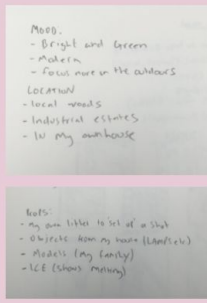 MOOD.
- Bright and Green
- Modern
- Focus more on the outdoors
LOCATION
- local woods
- Industrial estates
- In my own house
PROPS:
- my own titles to 'set of' a shot
- Objects from my house (LAMPS etc)
- Models (my family)
- ICE (shows melting)